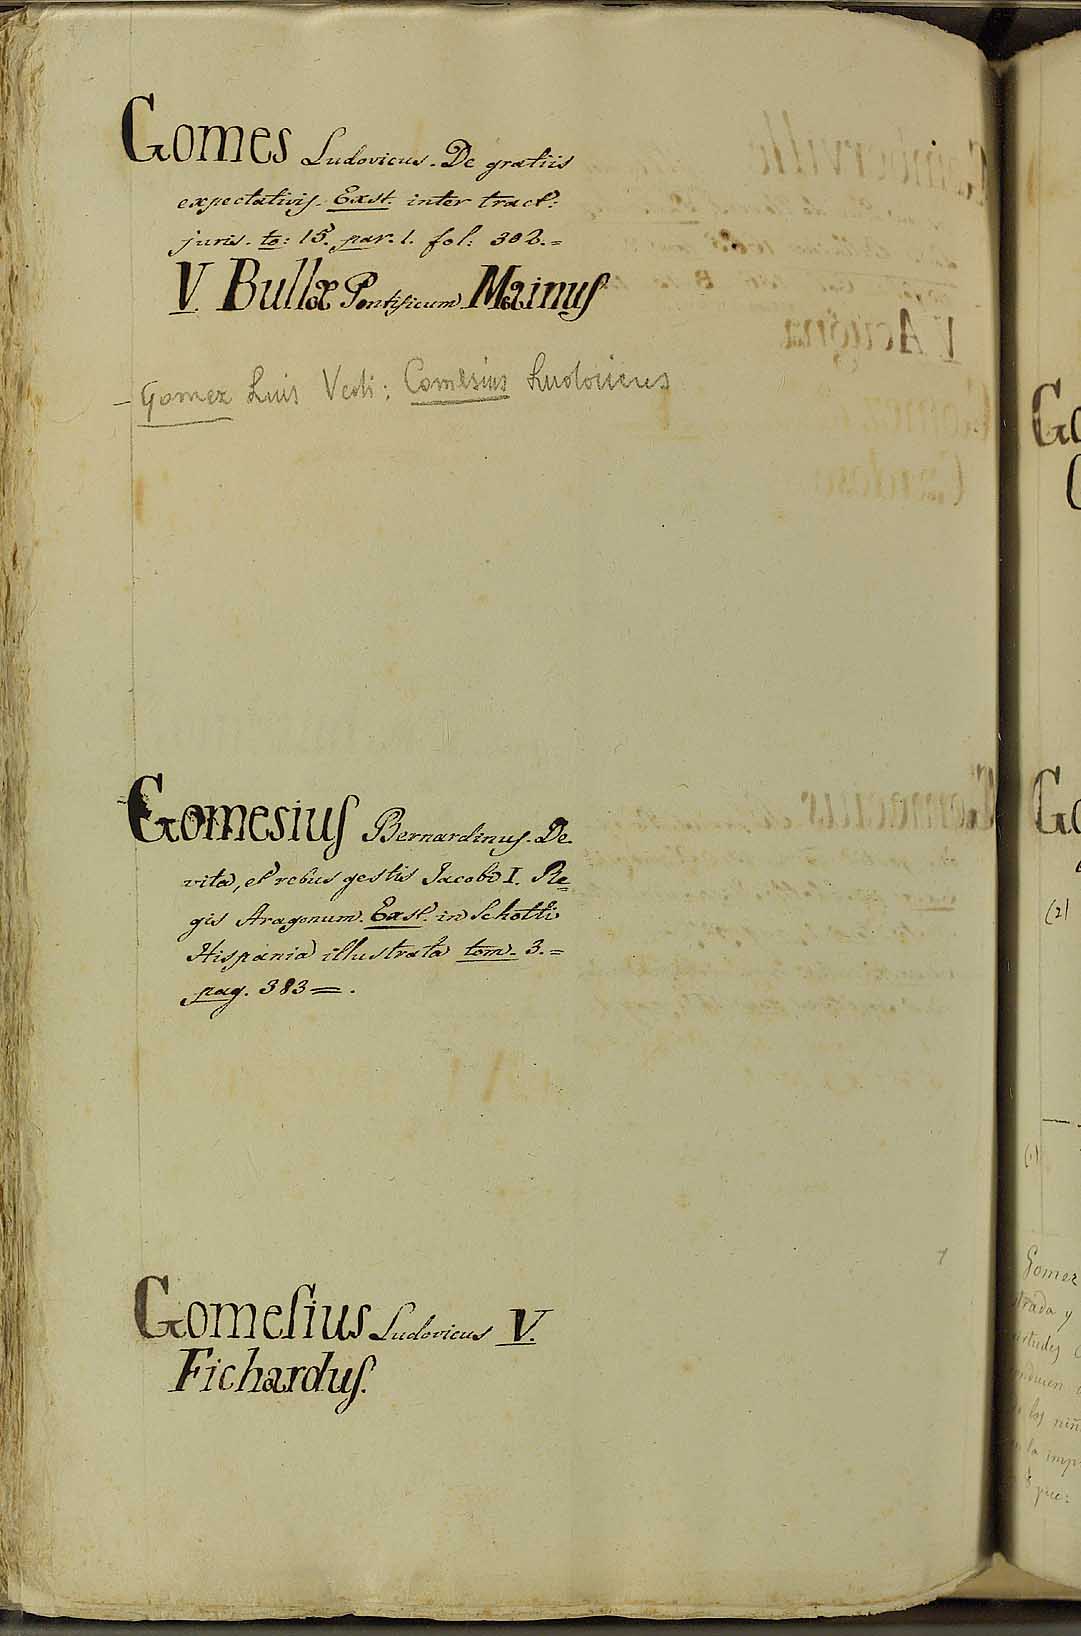 Gomes Ludovicus. De gratiis
expectativis. Exst. inter tract:
juris. to: 15. par. 1. fol: 302.=
V. Bullæ Pontificum. Mainus
– Gomez Luis Vedi: Comesius Ludovicus
Gomesius Bernardinus. De
vita, et rebus gestis Jacobi I. Re=
gis Aragonum. Exst. in Schotti
Hispania illustrata tom. 3.=
pag. 383=.
Gomesius Ludovicus V.
Fichardus.
Go
Go
(2)
(1)
Gomez
strada y